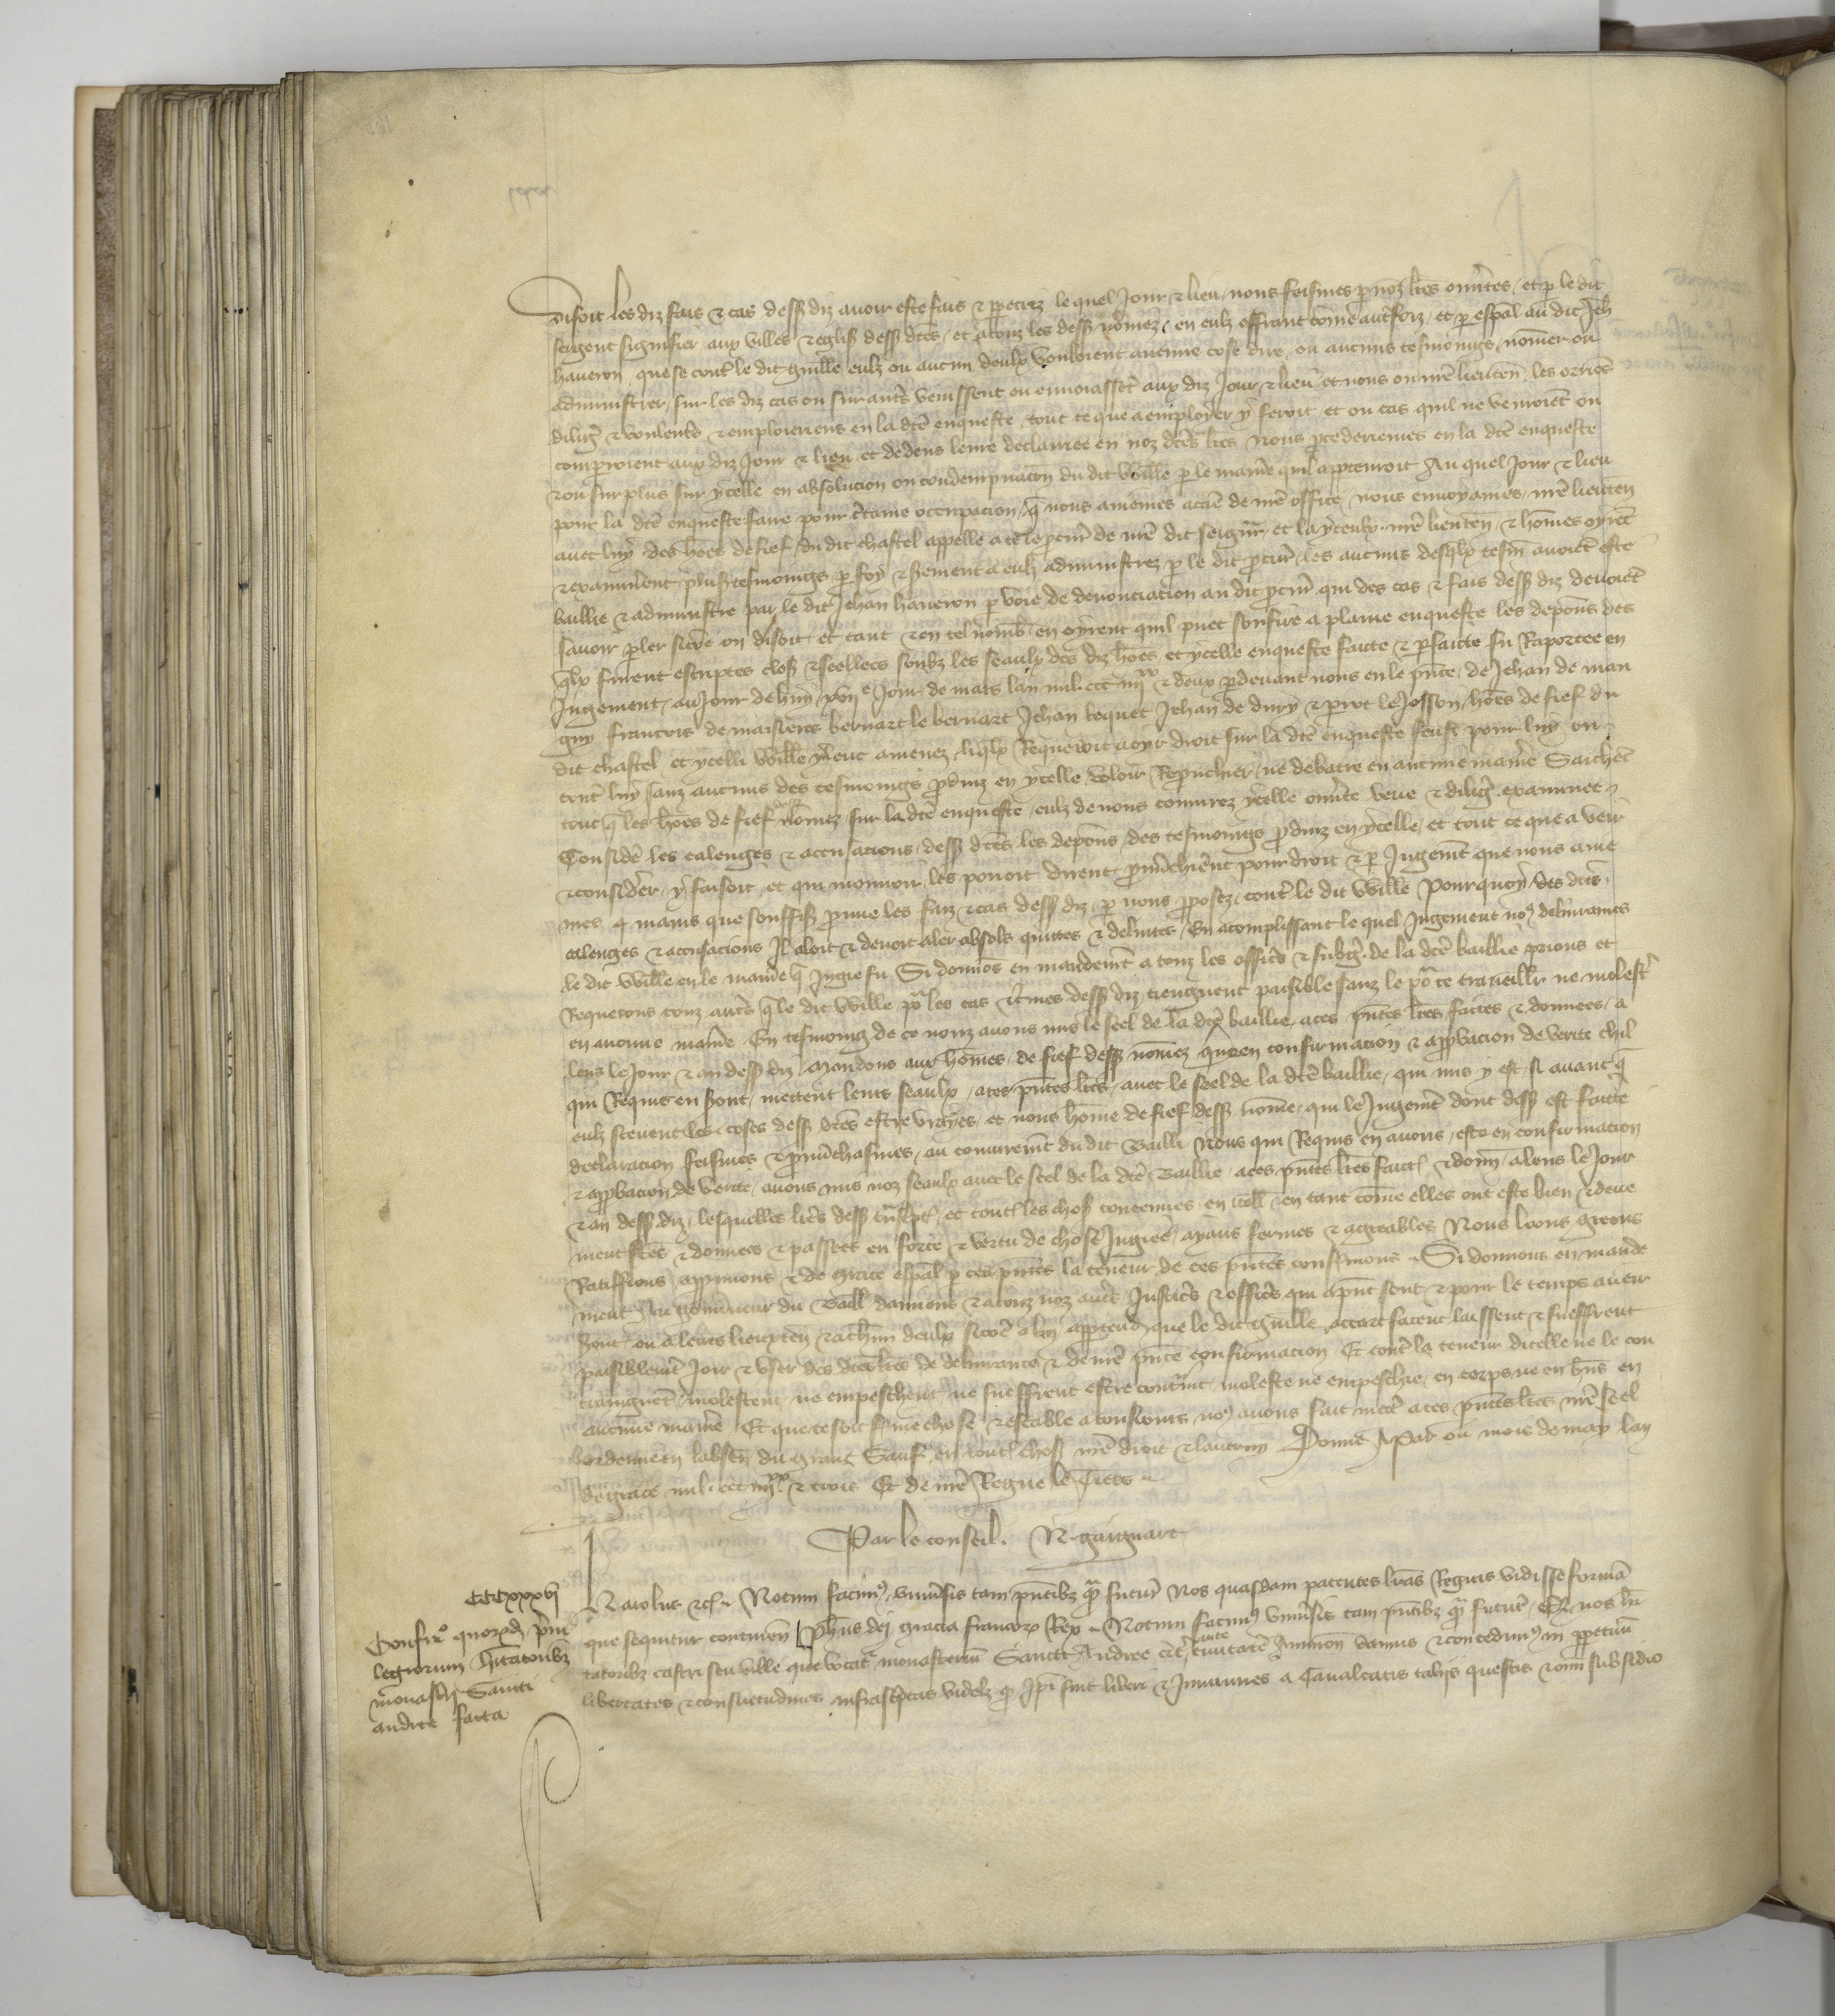 Disoit les diz fais & cas dess diz avoir este fais & ppetrez le quel Jour & lieu nous feismes p noz lres ouvtes et p le dit
sergent signifier aux villes & eglis dess dces et a touz les dess nomez en eulz offrant come autfoiz et p espal au dit Jeh
haveron que se cont le dit Guille eulz ou aucun deulx vouloient aucune cose dire ou aucuns tesmoings nomer ou
administrer sur les diz cas ou sur auts venissent ou envoiasset aux diz Jour & lieu et nous ou nre lieuten les orriens
dilig & voulents & emploieriens en la dce enqueste tout ce que a employer y feroit et ou cas quil ne venroiet ou
comproient aux diz Jour & lieu et dedens leure declairee en noz dces lres Nous pcederiemes en la dce enqueste
& ou surplus sur ycelle en absolucion ou condempnacon du dit Wille p le maniere quil apptenroit Au quel Jour & lieu
pour la dce enqueste faire pour ctaine occupacion q nous aviemes a cause de nre office nous envoyames nre lieuten
avec luy des hoes de fief du dit chastel appelle a ce le pcur de nre dit seigur et la yceulx nre lieuten & homes oyret
& examinent plus tesmoings p foy & sement a eulz administrez p le dit pcur les aucuns desqlx tesm avoiet este
baillie & administre par le dit Jehan haveron p voie de denonciation au dit pcur qui des cas & fais dess diz devoiet
savoir pler sicoe on disoit et tant & en tel nomb en oyrent quil puet souffire a plaine enqueste les depons des
qlx furent escriptes closes & seellees soubz les seaulx des diz hoes et ycelle enqueste faite & pfaicte fu Raportee en
Jugement au Jour de huy xvije Jour de mars lan mil ccc iiijxx & deux pdevant nous en le pnce de Jehan de man
guy francois de maisieres bernart le bernart Jehan bequet Jehan de dury & pierot le Josson hoes de fief du
dit chastel et ycelli Wille yleuc amenez liqlx Requeroit a oyr droit sur la dce enqueste feust pour luy ou
cont luy sanz aucuns des tesmoings pduiz en ycelle voloir Repruchier ne debatre en aucune manie Saichet
tout q les hoes de fief nomez sur la dce enqueste eulz de nous conjurez ycelle ouvte veue & dilig examinee
Conside les calenges & acusacions dess dces les depons des tesmoings pduiz en ycelle et tout ce que a veir
& considerer y faisoit et qui mouvoir les povoit dirent pnuchierent pour droit & p Jugemt que nous avie
mes q mains que souffis prouve les faiz & cas dess diz p nous pposez cont le dit Wille Pourquoy des dces
calenges & accusacions Il aloit & devoit aler absols quittes & delivres En acomplissant le quel Jugement no9 delivrames
le dit Wille en le manie q Jugie fu Si donnos en mandemt a touz les officrs & subg de la dce baillie prions et
Requerons touz auts q le dit Wille po les cas & cmes dess diz tiengnent paisible sanz le po ce traveillr ne molest
en aucune manie En tesmoing de ce nouz avons mis le seel de la dce baillie a ces pntes lres faites & donnees a
lens le Jour & an dess diz Mandons aux homes de fief dess nomez quen confirmation & approbacion de verite chil
qui Requis en sont mettent leurs seaulx a ces pntes lres avec le seel de la dce baillie qui mis y est si avant q
eulz scevent les coses dess dces estre vrayes et nous home de fief dess nome qui le Jugemt dont dess est faicte
declaracion feismes & pnuchasmes au conjuremt du dit Bailli Nous qui Requis en avons este en confirmation
& approbacion de verite avons mis noz seaulx avec le seel de la dce Baillie a ces pntes lres faict & donn a lens le Jour
& an dess diz lesquelles lres dess tnscptes et tout les chos contenues en icell en tant come elles ont este bien & deue
ment fces & donnees & passees en force & vertu de chose Jugiee ayans fermes & agreables Nous loons greons
Ratiffions appvuons & de grace espal p ces pntes la teneur de ces pntes confirmons Si donnons en mande
ment Au gouvneur du Baill damiens & a touz noz auts Justicrs & officrs qui apnt sont & pour le temps aven
sont ou a leurs lieuxten & a chun deulx sicoe a luy apptend que le dit Guille accart facent laissent & sueffrent
paisiblemt Joir & user des dces lres de delivrance & de nre pnte confirmacion Et cont la teneur dicelle ne le con
traingnet molestent ne empeschent ne sueffrent estre contnt moleste ne empeschie en corps ne en bns en
aucune manie Et que ce soit ferme chose & estable a tousiours no9 avons fait mett a ces pntes lres nre seel
ordenne en labsen du grant Sauf en tout chos nre droit & lautruy Donne A Paris ou mois de may lan
de grace mil ccc iiijxx & trois Et de nre Regne le Tiers
Par le conseil. N. Gaignart
CCCxxxvj
Confirmo quorumd privi
legiorum hitatoribz
monastij Sancti
andree facta
Karolus &c. Notum facim9 univsis tam pntibz qm futuris Nos quasdam patentes lras Regias vidisse formam
que sequitur continen Phus dei gracia Francorum Rex Notum facim9 univsis tam pntibz qm futur Q nos hi
tatoribz castri seu ville que vocatr monasterium Sancti Andree citr ante civitatem Avinion damus & concedim9 in ppetuum
libertates & consuetudines infrascptas videlz q Ipi sint liberi & Inmunes a Cavalcatis talijs questis & omi subsidio